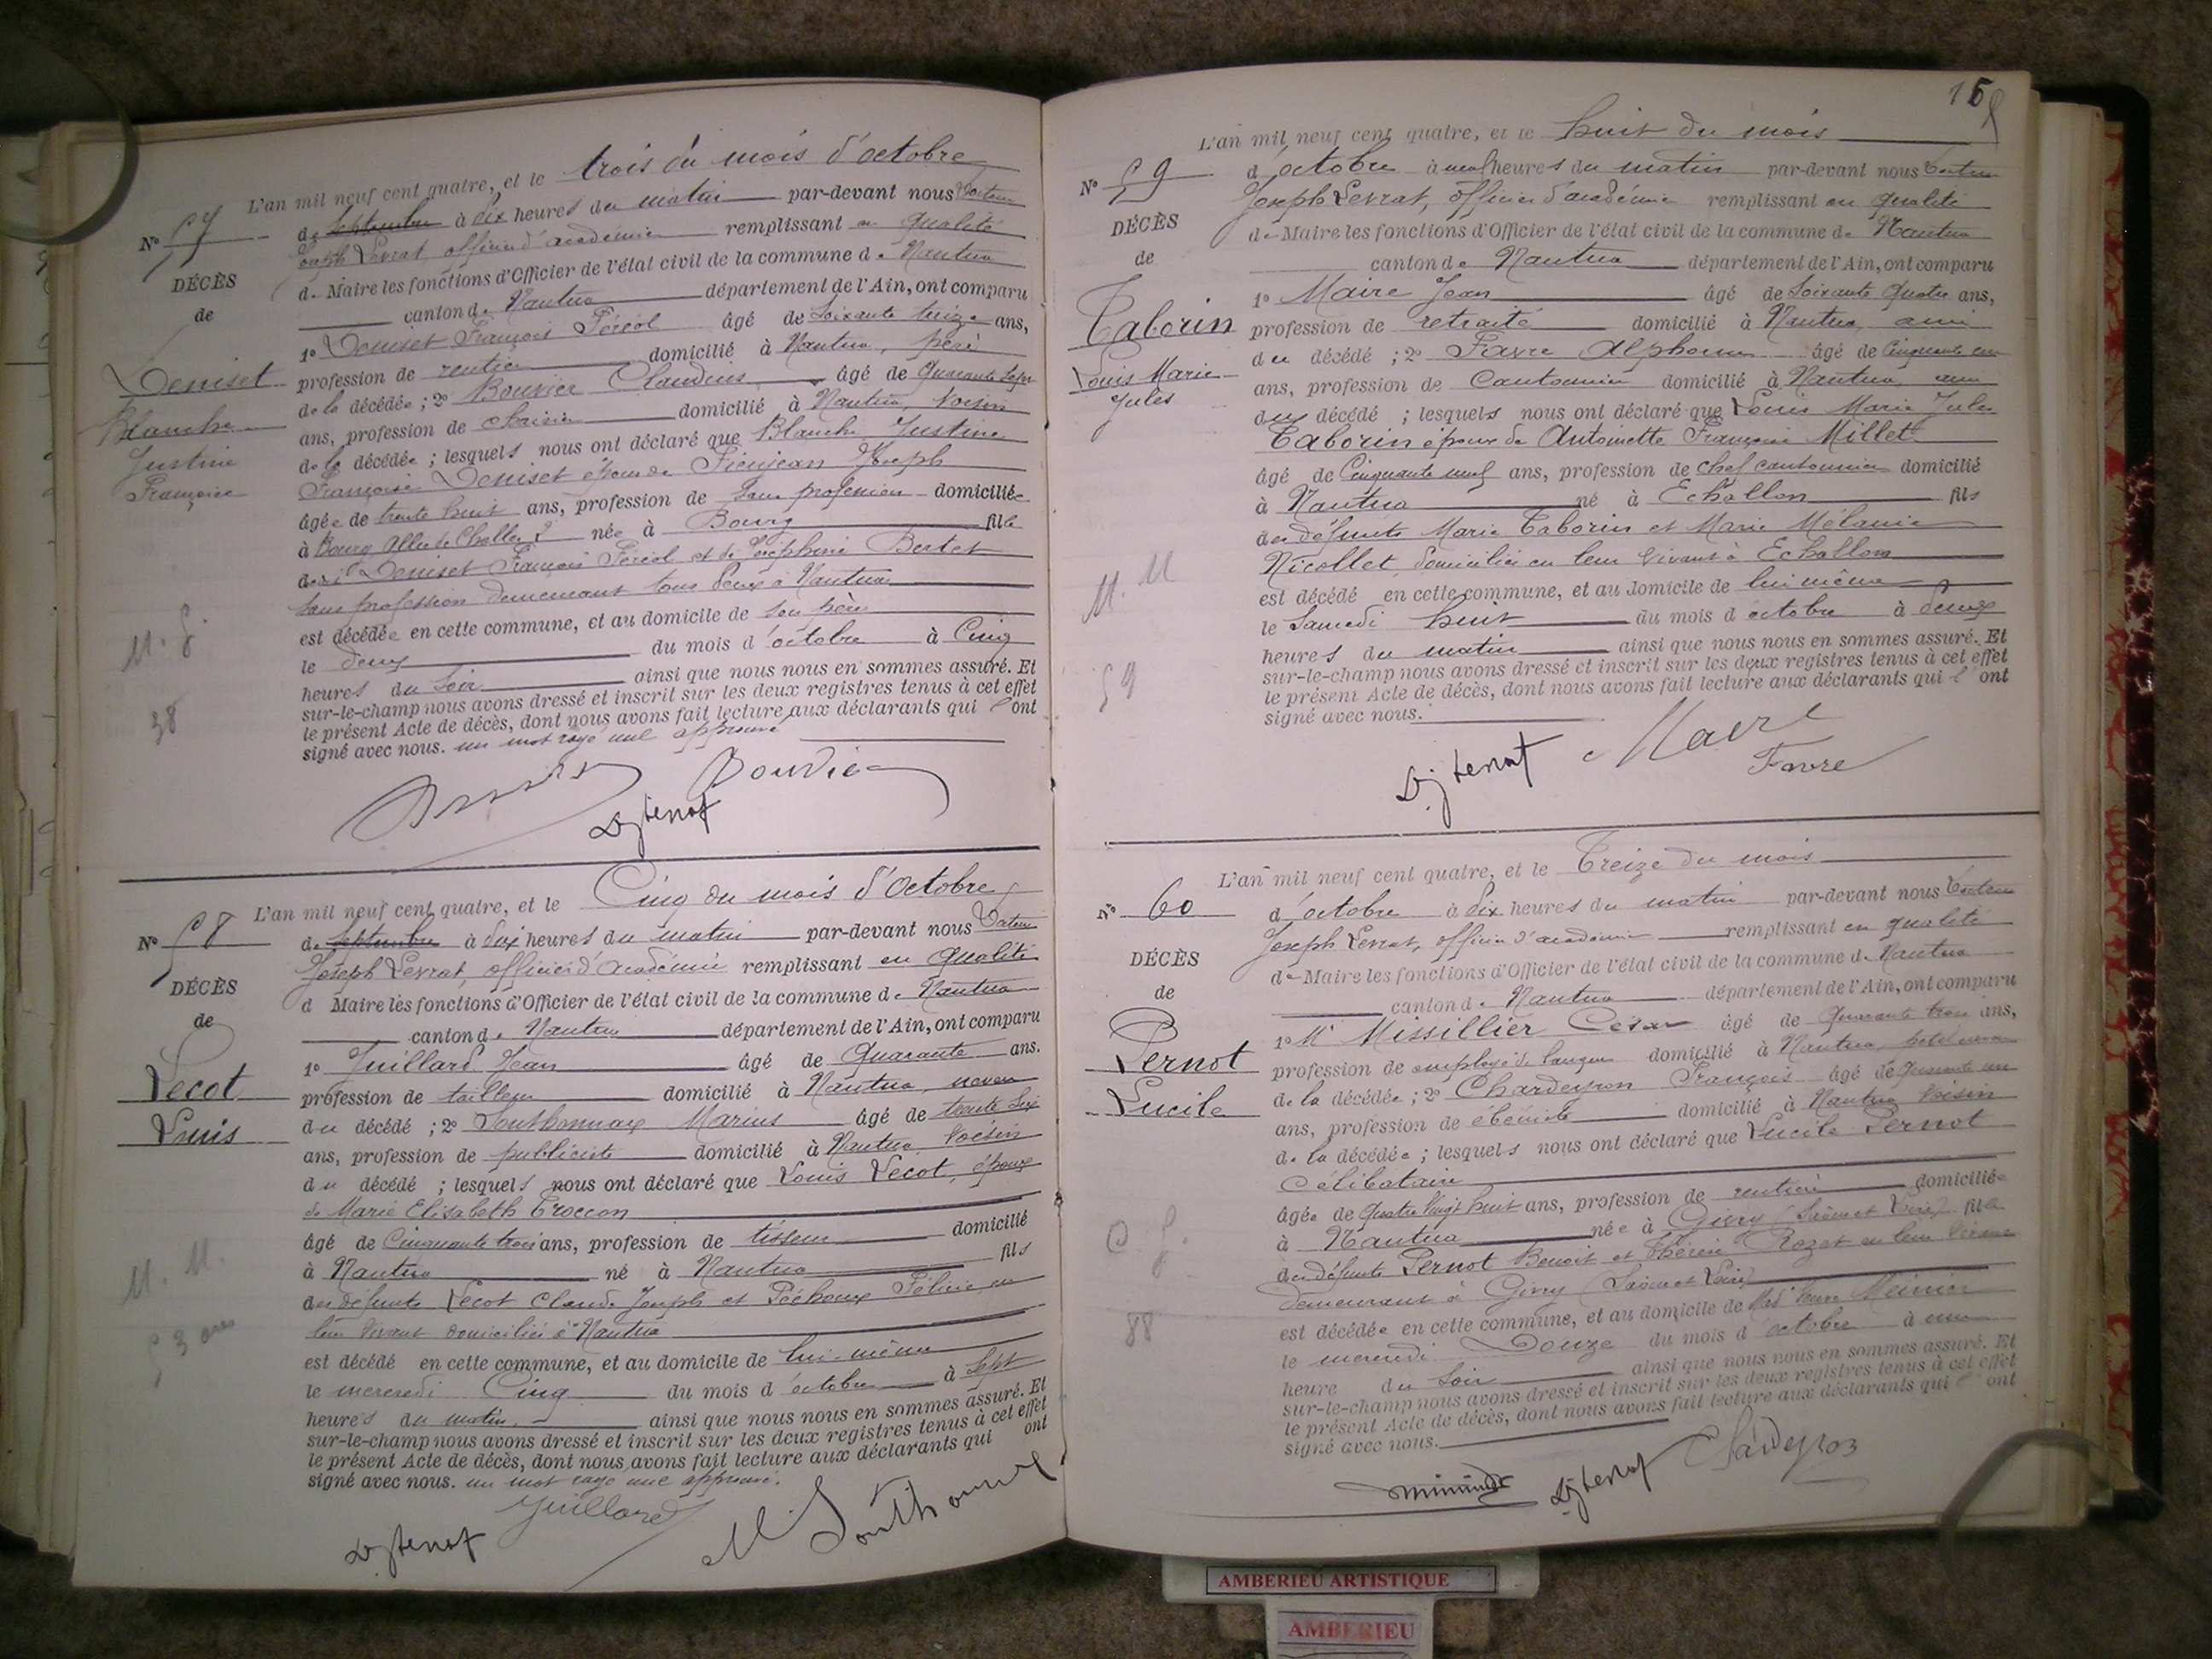 L'an mil neuf cent quatre, et le trois du mois d'octobre
N° 57
de septembre à dix heures du matin par-devant nous
Joseph Levrat, officier d'académie remplissant en qualité
de Maire les fonctions d'Officier de l'état civil de la commune de Nantua
DÉCÈS
de
Deniset
Blanche
Justine
Françoise
canton de Nantua département de l'Ain, ont comparu
1° Deniset François Féréol âgé de soixante treize ans,
profession de rentier domicilié à Nantua, père
de la décédée ; 2° Bouvier Claudius âgé de quarante sept
ans, profession de domicilié à Nantua, voisin
de la décédée ; lesquels nous ont déclaré que Blanche Justine
Françoise Deniset épouse de Joseph
âgée de trente huit ans, profession de sans profession domiciliée
à Bourg née à Bourg fille
de Deniset François Féréol et de Joséphine Bertet
sans profession demeurant tous deux à Nantua
est décédée en cette commune, et au domicile de son père
le deux du mois d'octobre à cinq
heures du soir ainsi que nous nous en sommes assuré. Et
sur-le-champ nous avons dressé et inscrit sur les deux registres tenus à cet effet
le présent Acte de décès, dont nous avons fait lecture aux déclarants qui l'ont
signé avec nous. un mot rayé nul approuvé
38
Bouvier
L'an mil neuf cent quatre, et le Cinq du mois d'Octobre
N° 58
de septembre à dix heures du matin par-devant nous
Joseph Levrat, officier d'académie remplissant en qualité
d Maire les fonctions d'Officier de l'état civil de la commune de Nantua
DÉCÈS
de
Lecot
Louis
canton de Nantua département de l'Ain, ont comparu
1° Juillard Jean âgé de quarante ans.
profession de tailleur domicilié à Nantua, neveu
du décédé ; 2° Southonnax Marius âgé de trente six
ans, profession de publiciste domicilié à Nantua voisin
du décédé ; lesquels nous ont déclaré que Louis Lecot, époux
de Marie Elisabeth Troccon
âgé de Cinquante trois ans, profession de tisseur domicilié
à Nantua né à Nantua fils
des défunts Lecot Claude Joseph et Péchoux en
leur vivant domiciliés à Nantua
est décédé en cette commune, et au domicile de lui-même
le mercredi Cinq du mois d'octobre à sept
heures du matin ainsi que nous nous en sommes assuré. Et
sur-le-champ nous avons dressé et inscrit sur les deux registres tenus à cet effet
le présent Acte de décès, dont nous avons fait lecture aux déclarants qui ont
signé avec nous. un mot rayé nul approuvé.
M. M.
53 ans
Juillard
M. Southonnax
L'an mil neuf cent quatre, et le huit du mois
N° 59
d'octobre à neuf heures du matin par-devant nous
Joseph Levrat, officier d'académie remplissant en qualité
de Maire les fonctions d'Officier de l'état civil de la commune de Nantua
DÉCÈS
de
Taborin
Louis Marie
Jules
canton de Nantua département de l'Ain, ont comparu
1° Maire Jean âgé de soixante quatre ans,
profession de retraité domicilié à Nantua, ami
du décédé ; 2° Favre Alphonse âgé de cinquante un
ans, profession de Cantonnier domicilié à Nantua ami
du décédé ; lesquels nous ont déclaré que Louis Marie Jules
Taborin époux de Antoinette Françoise Millet
âgé de Cinquante neuf ans, profession de chef cantonnier domicilié
à Nantua né à Echallon fils
des défunts Marie Taborin et Marie Mélanie
Nicollet, domiciliés en leur vivant à Echallon
est décédé en cette commune, et au domicile de lui même
le Samedi huit du mois d octobre à deux
heures du matin ainsi que nous nous en sommes assuré. Et
sur-le-champ nous avons dressé et inscrit sur les deux registres tenus à cet effet
le présent Acte de décès, dont nous avons fait lecture aux déclarants qui l'ont
signé avec nous.
M. M
59
Maire
Favre
L'an mil neuf cent quatre, et le Treize du mois
N° 60
d'octobre à dix heures du matin par-devant nous
Joseph Levrat, officier d'académie remplissant en qualité
de Maire les fonctions d'Officier de l'état civil de la commune de Nantua
DÉCÈS
de
Pernot
Lucile
canton de Nantua département de l'Ain, ont comparu
1° Mr Missillier César âgé de quarante trois ans,
profession de employé de banque domicilié à Nantua, petit neveu
de la décédée ; 2° Chardeyron François âgé de quarante un
ans, profession de ébéniste domicilié à Nantua voisin
de la décédée ; lesquels nous ont déclaré que Lucile Pernot
Célibataire
âgée de quatre vingt huit ans, profession de rentière domiciliée
à Nantua née à Givry (Saône et Loire) fille
des défunts Pernot Benoit et Rozet en leur vivant
demeurant à Givry (Saône et Loire)
est décédée en cette commune, et au domicile de Made Veuve Meunier
le mercredi Douze du mois d'octobre à une
heure du soir ainsi que nous nous en sommes assuré. Et
sur-le-champ nous avons dressé et inscrit sur les deux registres tenus à cet effet
le présent Acte de décès, dont nous avons fait lecture aux déclarants qui l'ont
signé avec nous.
88
Chardeyron
AMBERIEU ARTISTIQUE
AMBERIEU